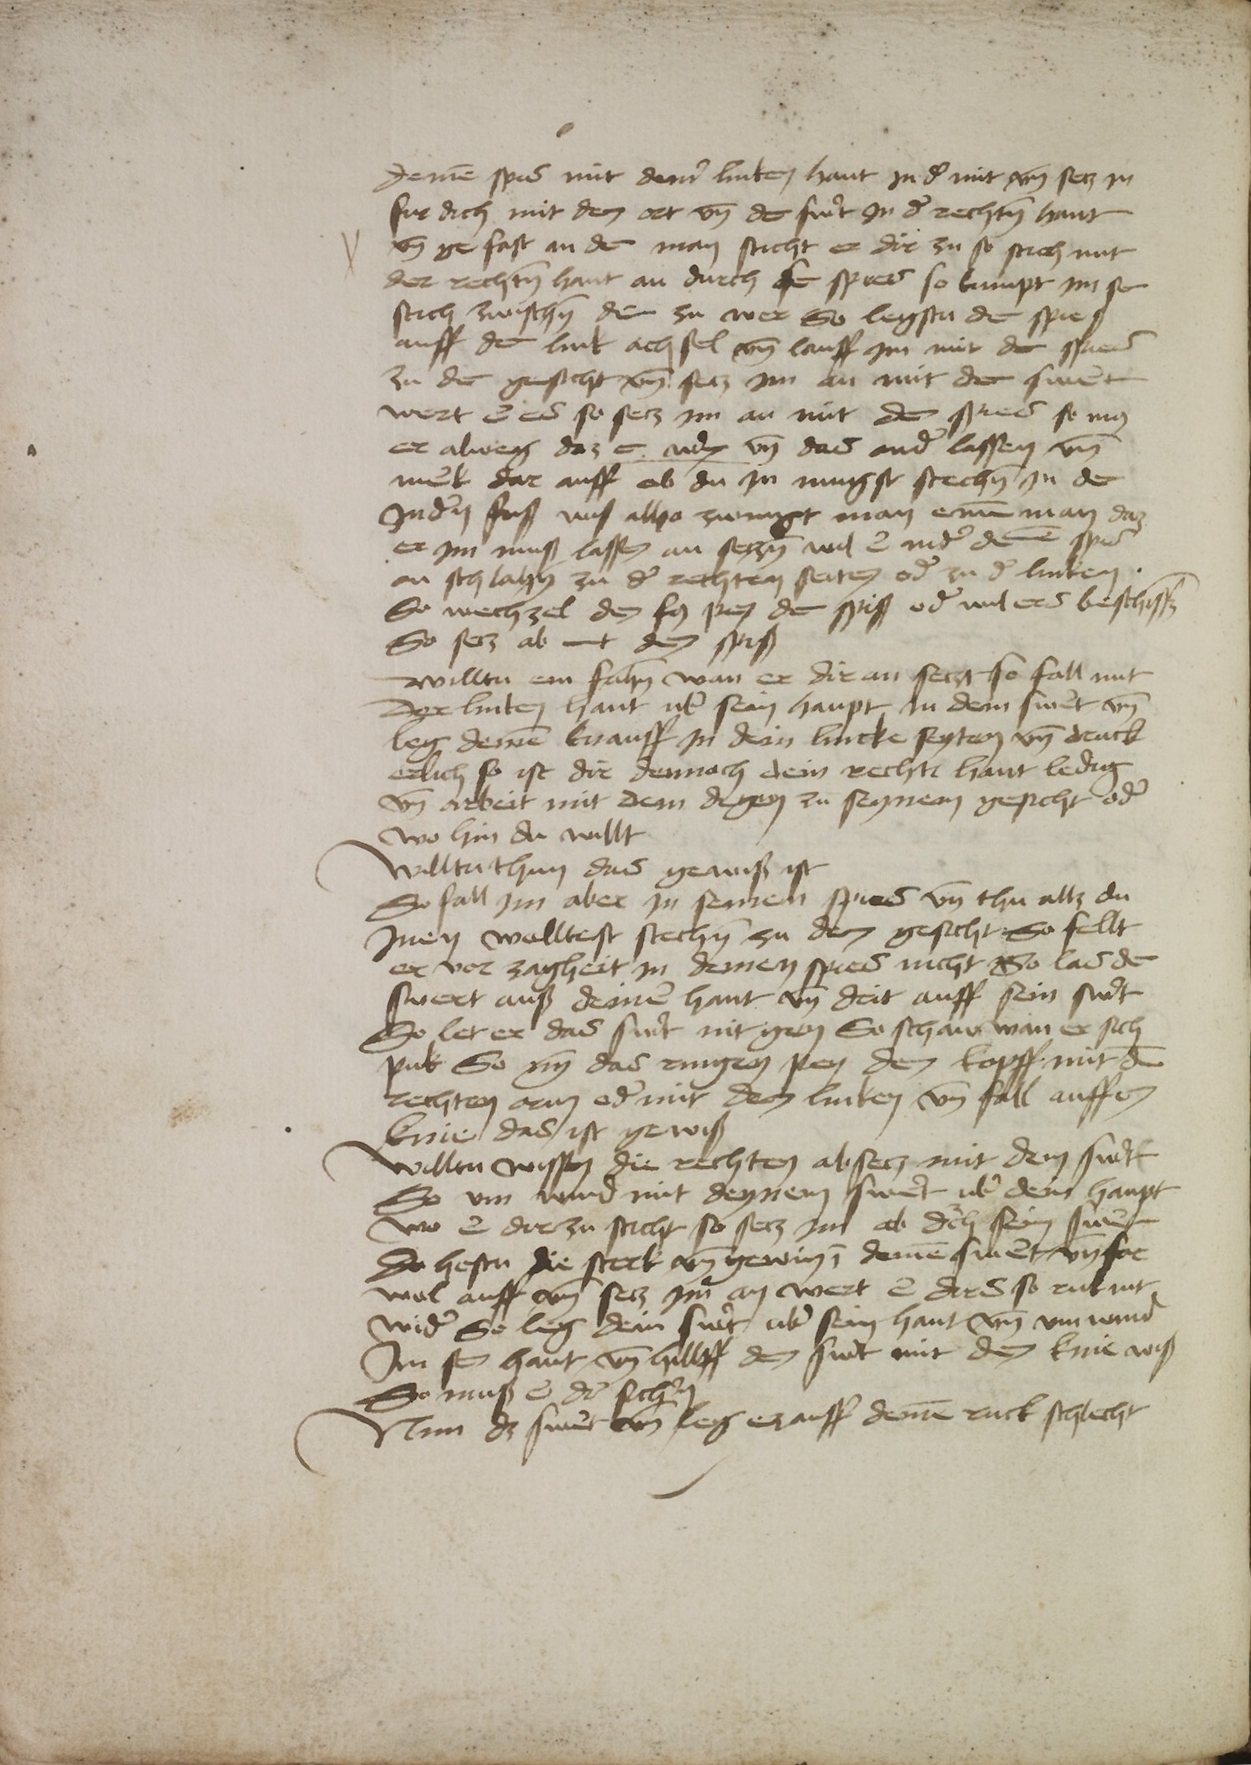 deme͂ spies mit dein͛ linken hant in d͛ mit vn̄ secz in
fur dich mit den ort vn̄ de swe͛t in d͛ rechtn̄ hant
vn̄ ge fast an de man sticht er dir zu so stich mit
der rechtn̄ hant an durch de spies so kumpt im se
stich zwischn̄ den zu wer So legstu de spies
auff de link achsel vn̄ lauff im mit de spies
zu de gesicht vn̄ secz im an mit de swe͛t
wert e͛ es so secz im an mit den spies so mus
er alweg daz vn̄ das and͛ lassen vn̄
merk dar auff ob du in mugst stechn̄ in de
Ind͛n fuß alßo zwingt man eine͂ man daz
er im muß lassen an seczn̄ wil e͛ nid͛ deine͂ spies
an schlahn̄ zu d͛ rechten seiten od͛ zu d͛ linken
So wechzel den de spiß od͛ wil ers
So secz ab mit den spiß
Willtu ein fahn̄ wan er dir an seczt so fall mit
Der linken hant ub͛ sein haupt in dem swe͛t vn̄
leg deine͂ knauff in dein lincke seyten vn̄ druck
erlich so ist dir dennoch dein recht͛ hant ledig
vn̄ arbeit mit dem degen zu seynem gesicht od͛
wo hin du willt
Willtu thun das gewiß ist
So fall im aber in seinen spies vn̄ thu alls du
Inen wolltest stechn̄ zu dem gesicht So fellt
er vor zagheit in deinen spies nicht So las de
swert auß deine͛ hant vn̄ drit auff sein swe͛t
So let er das swe͛t nit gen So schaw wan er sich
puk So nym̄ das ringen pey den kopff mit d͂e
rechten arm od͛ mit dem linken vn̄ fall auff en
knie das ist gewiß
Willtu wissen die rechten absecz mit dem swe͛t
So um wind mit deynem swe͛t ub͛ dein haupt
wo e͛ dir zu sticht so secz im ab d͛ch sein swe͛t
So hestu die sterk vn̄ gewin͂ deine͂ swe͛t vn̄ far
wol auff vn̄ secz im an wert e͛ dirs so ruk mit
wid͛ So leg dein swe͛t ub͛ sein hant vn̄ um wind
Im sey hant vn̄ hillff dem swe͛t mit dem knie wiß
So muß e͛ d͛
Nim dz swe͛t vn̄ leg ez auff deine͂ ruck schlecht